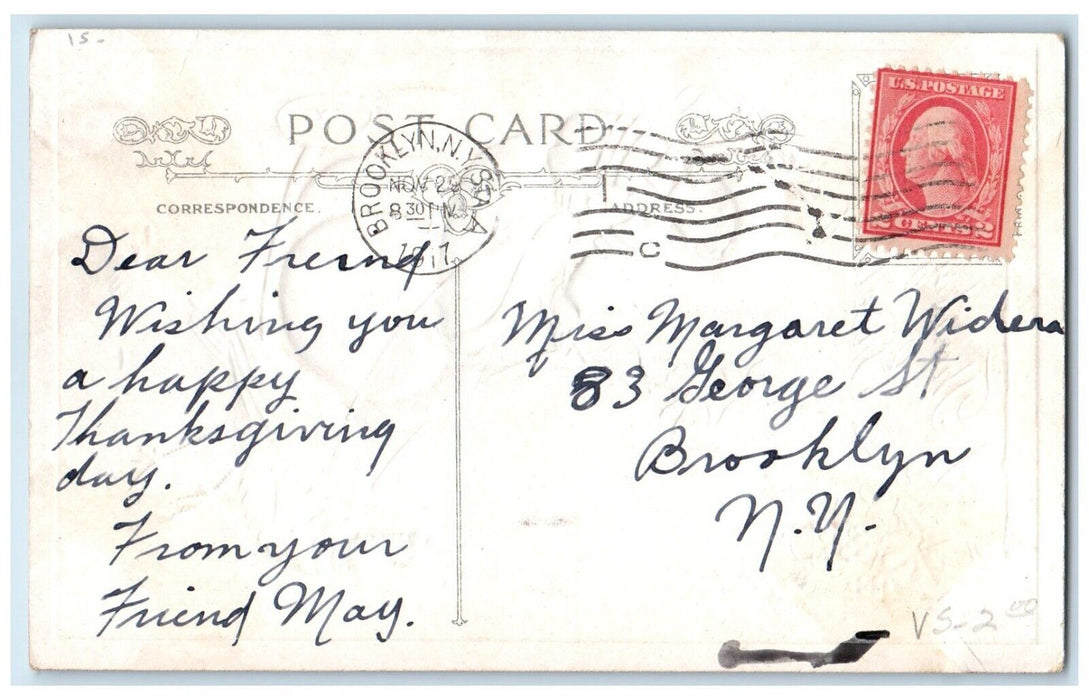 15-
POST CARD
CORRESPONDENCE.
ADDRESS.
BROOKLYN, N.Y. STA. A
NOV 28
8 30 PM
1917
C
U.S. POSTAGE
2 CENTS 2
Dear Freind
Wishing you
a happy
Thanksgiving
day.
From your
Friend May.
Miss Margaret Widera
83 George St
Brooklyn
N.Y.
VS-2 00